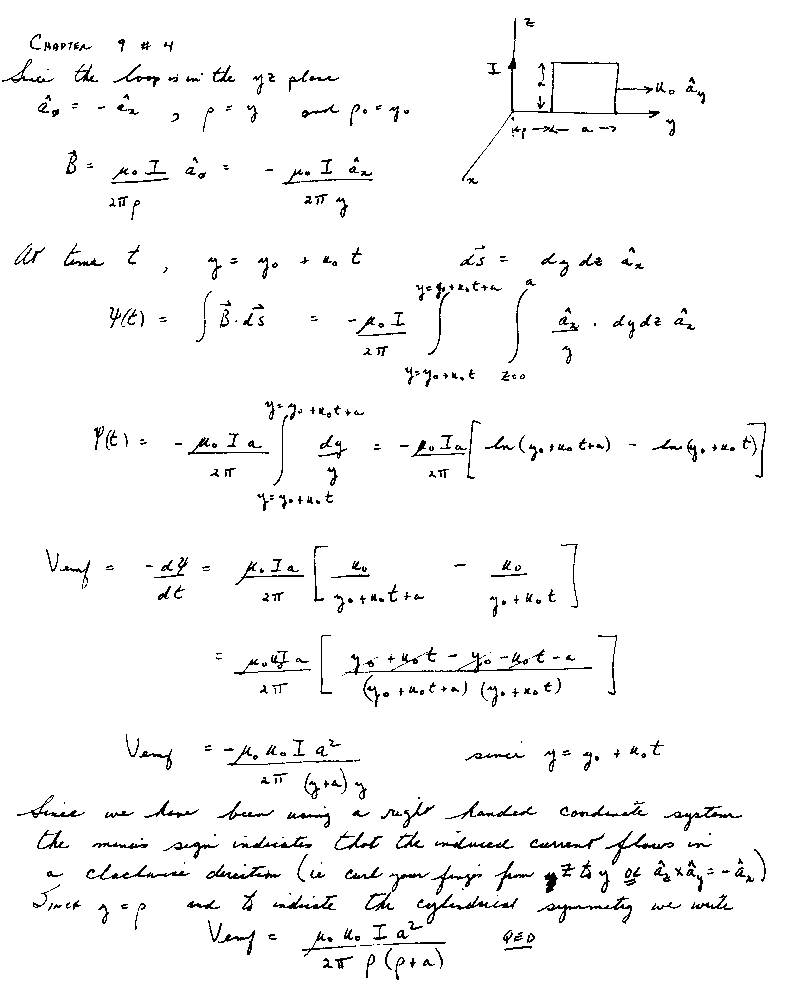 CHAPTER 9 # 4
Since the loop is in the yz plane
â_ø = - â_x , ρ = y and ρ₀ = y₀
z
I
a
u₀ â_y
ρ a
y
x
B⃗ = μ₀ I / 2πρ â_ø = - μ₀ I â_x / 2π y
At time t , y = y₀ + u₀ t d⃗s = dy dz â_x
Ψ(t) = ∫ B⃗ · d⃗s = -μ₀ I / 2π ∫_{y=y₀+u₀t}^{y=y₀+u₀t+a} ∫_{z=0}^{a} â_x / y · dy dz â_x
Ψ(t) = - μ₀ I a / 2π ∫_{y=y₀+u₀t}^{y=y₀+u₀t+a} dy / y = - μ₀ I a / 2π [ ln (y₀+u₀t+a) - ln (y₀+u₀t) ]
Vemf = -dΨ / dt = μ₀ I a / 2π [ u₀ / y₀+u₀t+a - u₀ / y₀+u₀t ]
= μ₀ u₀ I a / 2π [ y₀ + u₀t - y₀ - u₀t - a / (y₀+u₀t+a) (y₀+u₀t) ]
Vemf = -μ₀ u₀ I a² / 2π (y+a) y since y = y₀ + u₀t
Since we have been using a right handed coordinate system
the minus sign indicates that the induced current flows in
a clockwise direction (ie curl your fingers from z to y or â_z x â_y = - â_x)
Since y = ρ and to indicate the cylindrical symmetry we write
Vemf = μ₀ u₀ I a² / 2π ρ (ρ+a) QED